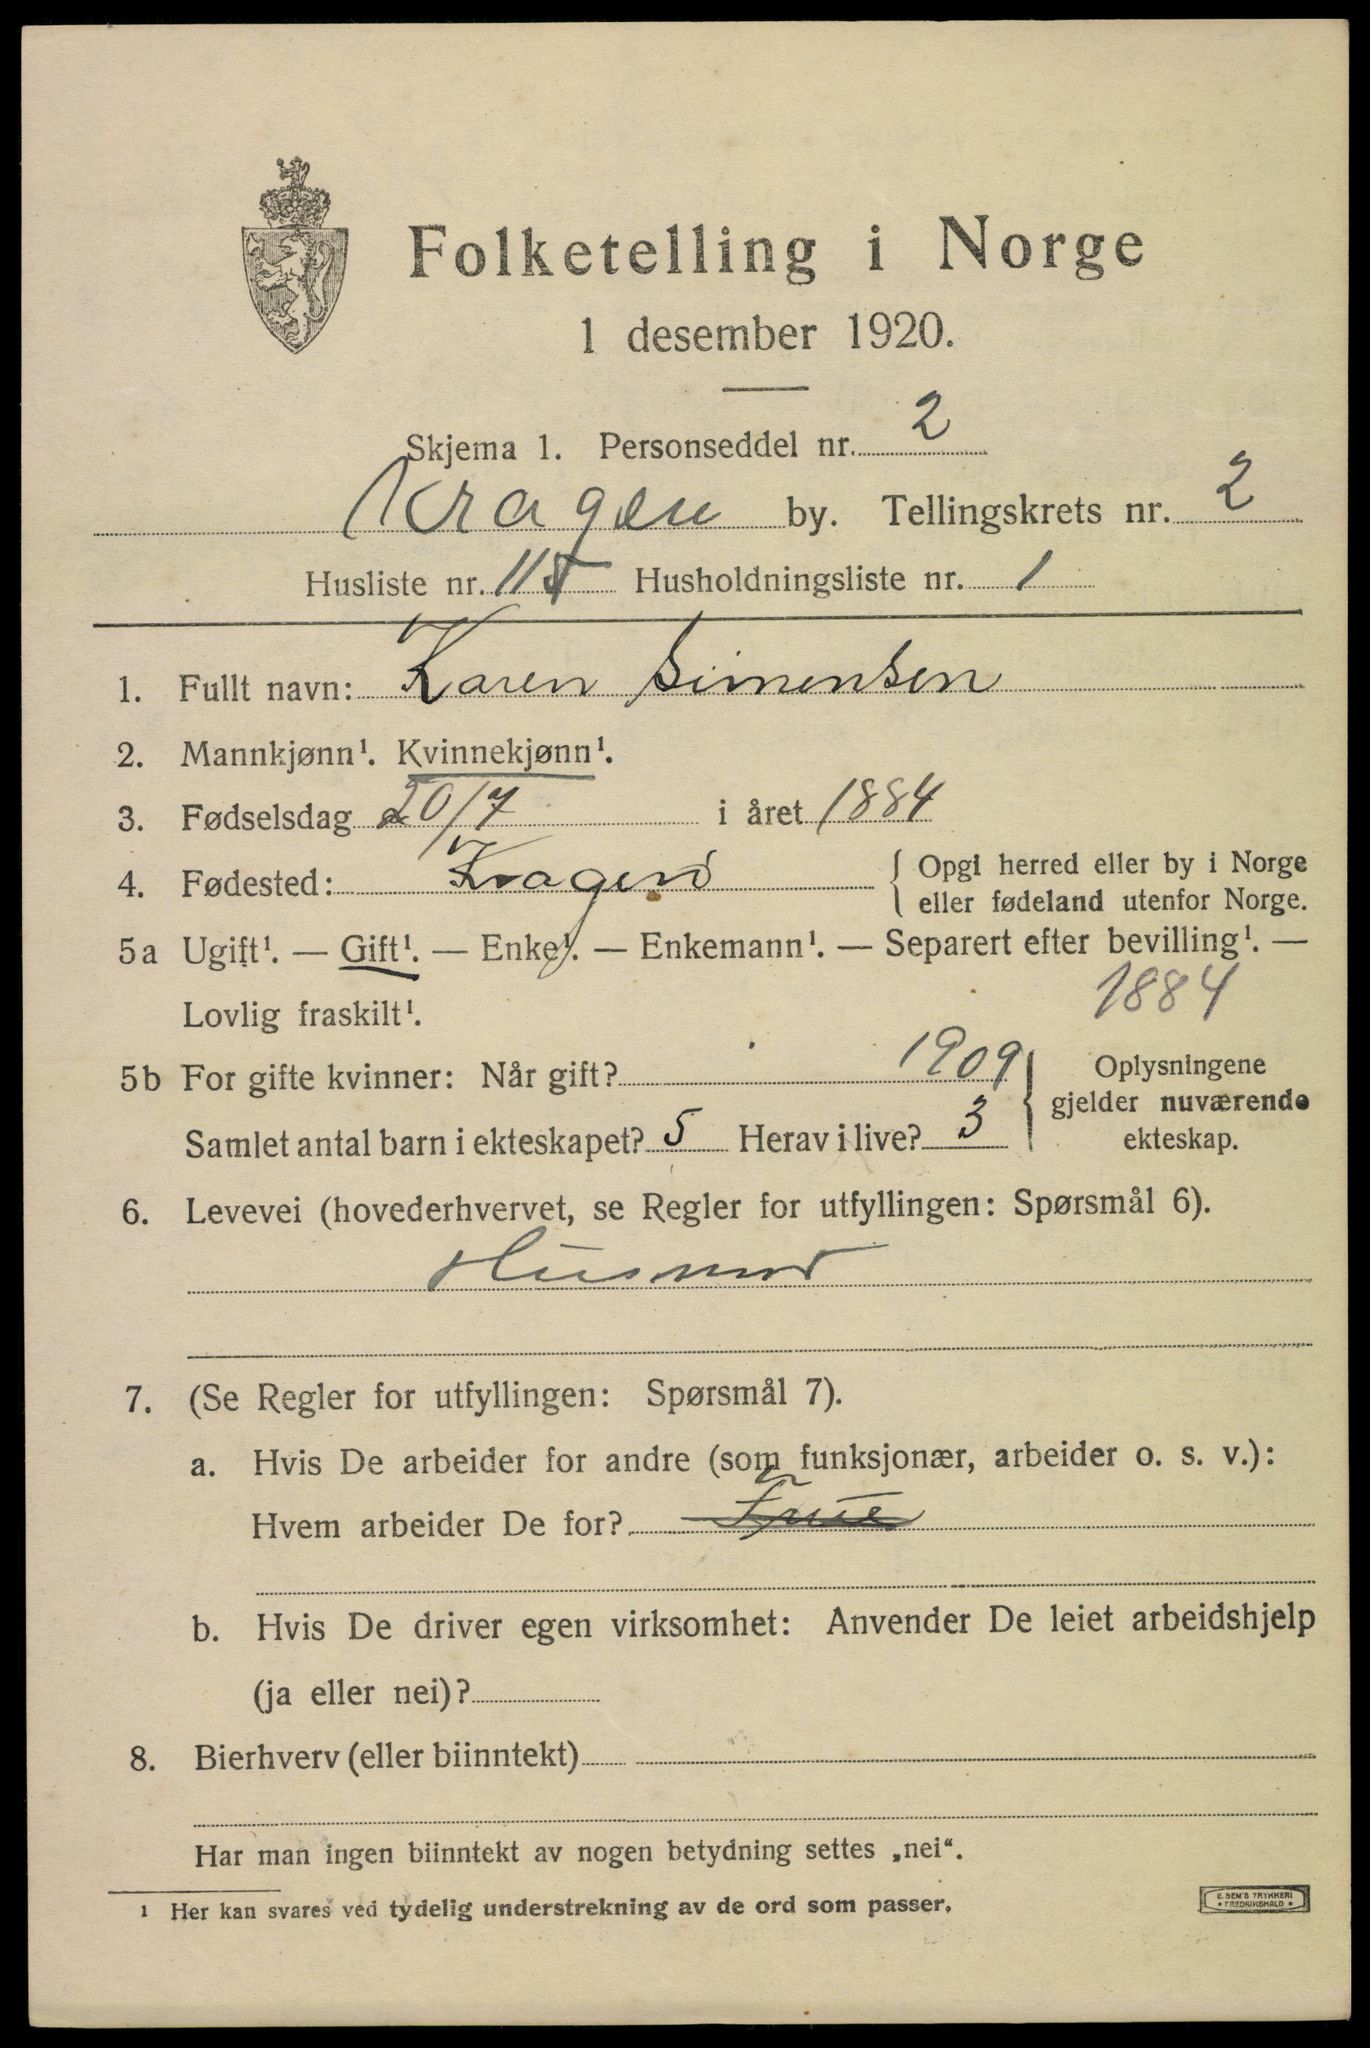 Folketelling i Norge
1 desember 1920.
Skjema 1. Personseddel nr. 2
Kragerø by. Tellingskrets nr. 2
Husliste nr. 115 Husholdningsliste nr. 1
1. Fullt navn: Karen Simensen
2. Mannkjønn¹. Kvinnekjønn¹.
3. Fødselsdag 20/7 i året 1884
4. Fødested: Kragerø { Opgi herred eller by i Norge
eller fødeland utenfor Norge.
5a Ugift¹. — Gift¹. — Enke¹. — Enkemann¹. — Separert efter bevilling¹. —
Lovlig fraskilt¹. 1884
5b For gifte kvinner: Når gift? 1909
Samlet antal barn i ekteskapet? 5 Herav i live? 3
} Oplysningene
gjelder nuværende
ekteskap.
6. Levevei (hovederhvervet, se Regler for utfyllingen: Spørsmål 6).
Husmor
7. (Se Regler for utfyllingen: Spørsmål 7).
a. Hvis De arbeider for andre (som funksjonær, arbeider o. s. v.):
Hvem arbeider De for? Frue
b. Hvis De driver egen virksomhet: Anvender De leiet arbeidshjelp
(ja eller nei)?
8. Bierhverv (eller biinntekt)
Har man ingen biinntekt av nogen betydning settes „nei“.
¹ Her kan svares ved tydelig understrekning av de ord som passer.
E. SEM'S TRYKKERI
* FREDRIKSHALD *